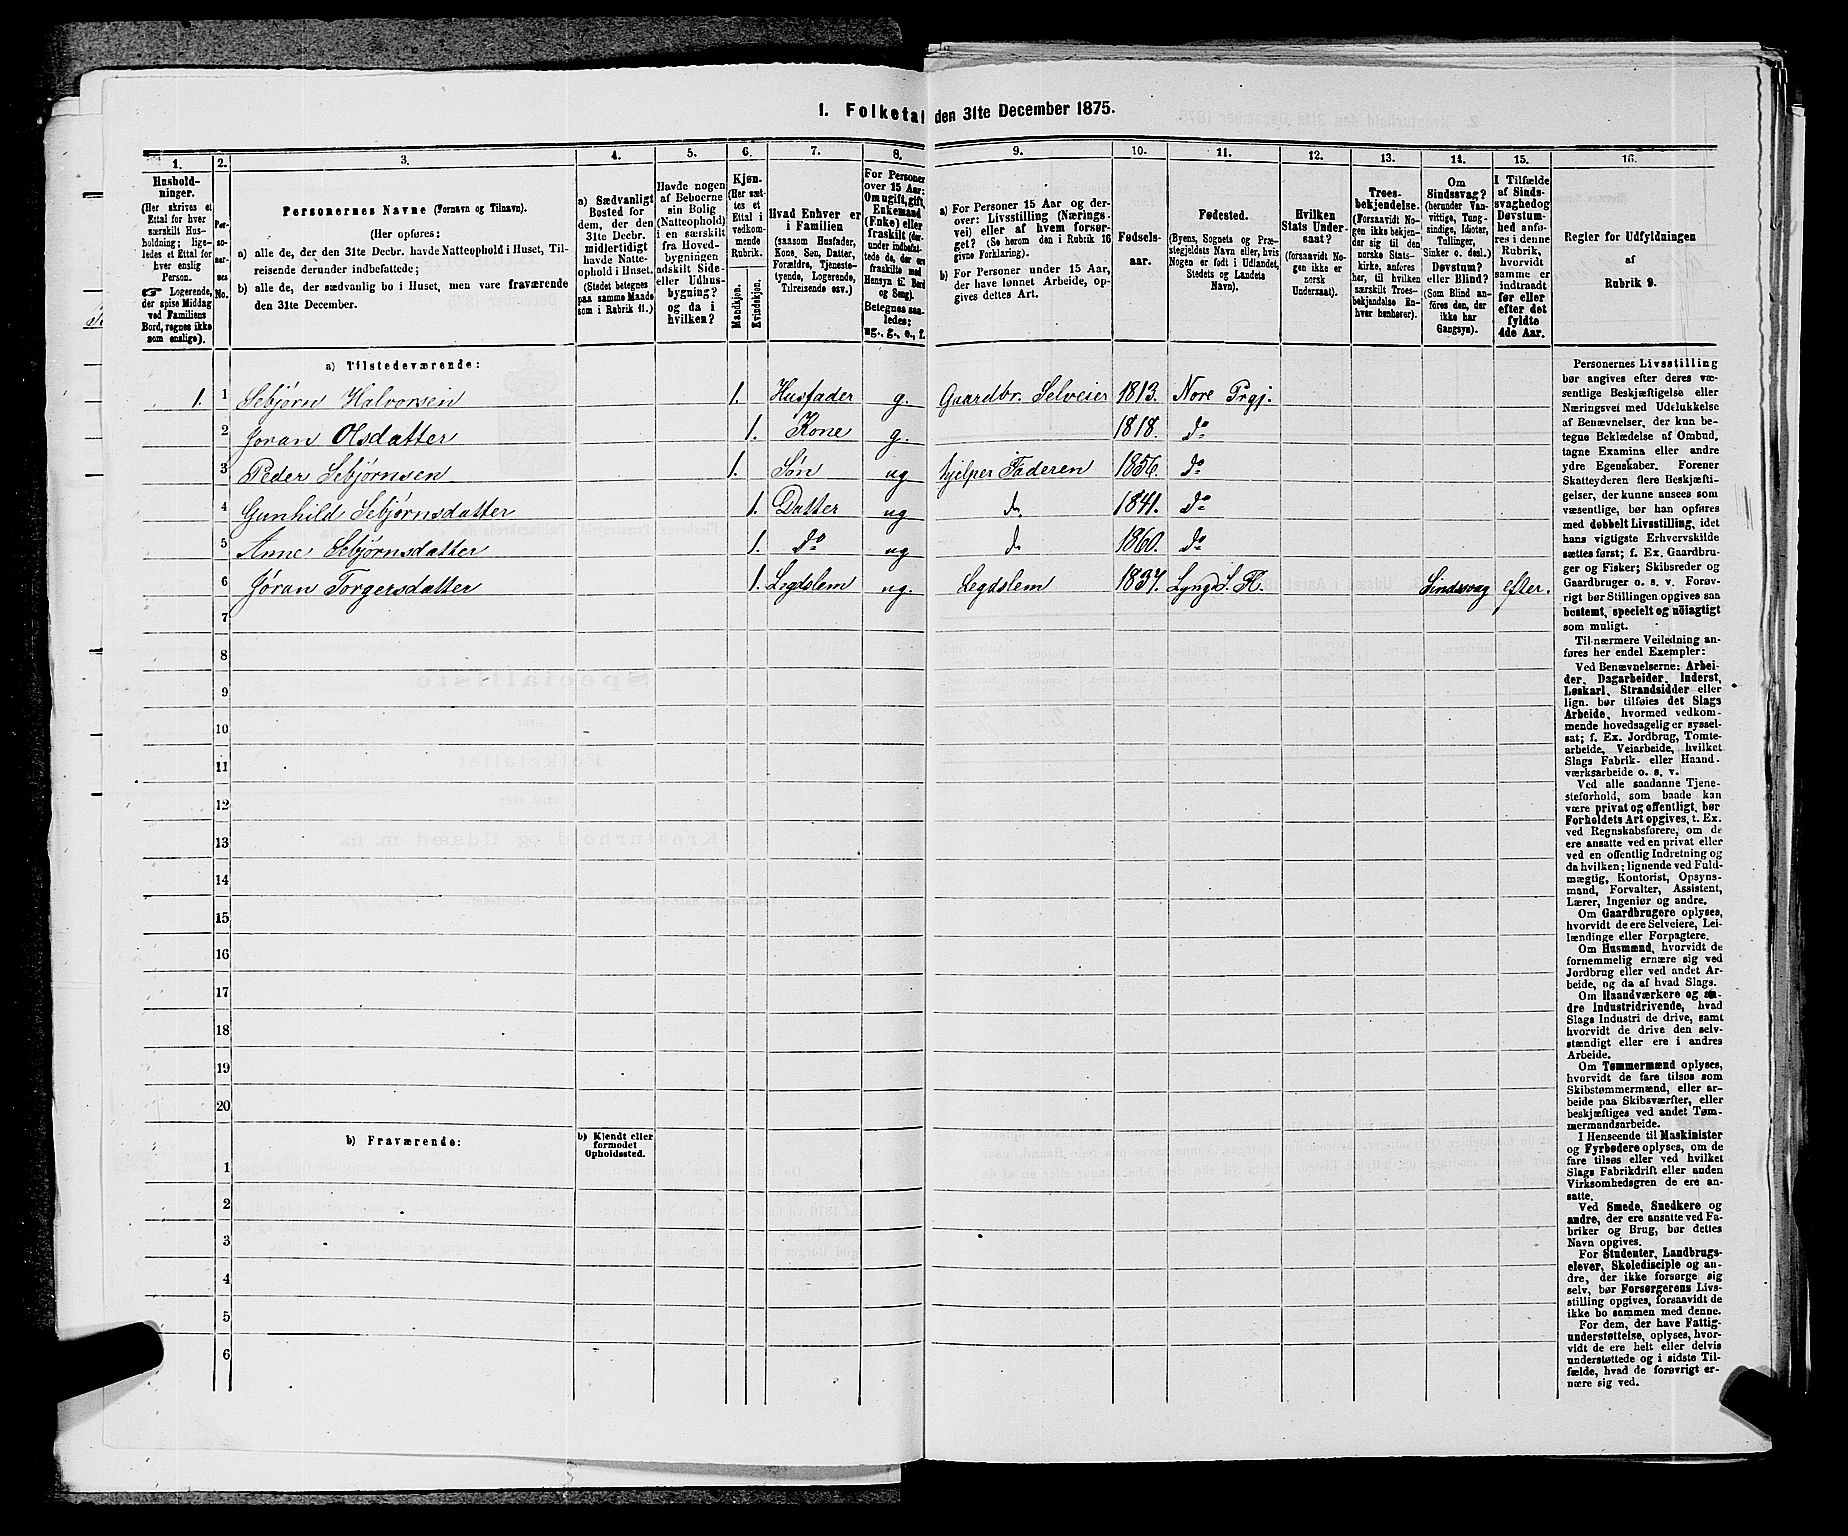 1. Folketal den 31te December 1875.
1. 2. 3. 4. 5. 6. 7. 8. 9. 10. 11. 12. 13. 14. 15. 16.
Hushold-
ninger.
(Her skrives et
Ettal for hver
særskilt Hus-
holdning; lige-
ledes et Ettal for
hver enslig
Person.
☞ Logerende,
der spise Middag
ved Familiens
Bord, regnes ikke
som enslige).
Per-
so-
ner-
nes
No.
Personernes Navne (Fornavn og Tilnavn).
(Her opføres:
a) alle de, der den 31te Decbr. havde Natteophold i Huset, Til-
reisende derunder indbefattede;
b) alle de, der sædvanlig bo i Huset, men vare fraværende
den 31te December.
a) Sædvanligt
Bosted for
dem, der den
31te Decbr.
midlertidigt
havde Natte-
ophold i Huset.
(Stedet betegnes
paa samme Maade
som i Rubrik 11.)
Havde nogen
af Beboerne
sin Bolig
(Natteophold)
i en særskilt
fra Hoved-
bygningen
adskilt Side-
eller Udhus-
bygning?
og da i
hvilken?
Kjøn.
(Her sæt-
tes et
Ettal i
vedkom-
mende
Rubrik.
Mandkjøn.
Kvindekjøn.
Hvad Enhver er
i Familien
(saasom Husfader,
Kone, Søn, Datter,
Forældre, Tjeneste-
tyende, Logerende,
Tilreisende osv.)
For Personer
over 15 Aar:
Om ugift, gift,
Enkemand
(Enke) eller
fraskilt (der-
under indbefat-
tede de, der ere
fraskilte med
Hensyn til Bord
og Seng).
Betegnes saa-
ledes:
ug., g., e., f.
a) For Personer 15 Aar og der-
over: Livsstilling (Nærings-
vei) eller af hvem forsør-
get? (Se herom den i Rubrik 16
givne Forklaring).
b) For Personer under 15 Aar,
der have lønnet Arbeide, op-
gives dettes Art.
Fødsels-
aar.
Fødested.
(Byens, Sognets og Præ-
stegjeldets Navn eller, hvis
Nogen er født i Udlandet,
Stedets og Landets
Navn).
Hvilken
Stats Under-
saat?
(forsaavidt No-
gen ikke er
norsk
Undersaat).
Troes-
bekjendelse.
(Forsaavidt No-
gen ikke bekjen-
der sig til den
norske Stats-
kirke, anføres
her, til hvilken
særskilt Troes-
bekjendelse En-
hver henhører).
Om
Sindssvag?
(herunder Van-
vittige, Tung-
sindige, Idioter,
Tullinger,
Sinker o. desl.)
Døvstum?
eller Blind?
(Som Blind an-
føres den, der
ikke har
Gangsyn).
I Tilfælde
af Sinds-
svaghed og
Døvstum-
hed anfø-
res i denne
Rubrik,
hvorvidt
samme er
indtraadt
før eller
efter det
fyldte
4de Aar.
Regler for Udfyldningen
af
Rubrik 9.
a) Tilstedeværende:
1. 1 Sebjørn Halvorsen 1. Husfader g. Gaardbr. Selveier 1813. Nore Prgj.
2 Jøran Olsdatter 1. Kone g. 1818. do
3 Peder Sebjørnsen 1. Søn ug hjelper Faderen 1856. do
4 Gunhild Sebjørnsdatter 1. Datter ug d. 1841. do
5 Anne Sebjørnsdatter 1. do ug d 1860. do
6 Jøran Torgersdatter 1. Legdslem ug. Legdslem 1837. Lyngd. S. Fl. Sindssvag efter.
7
8
9
10
11
12
13
14
15
16
17
18
19
20
b) Fraværende:
b) Kjendt eller
formodet
Opholdssted.
1
2
3
4
5
6
Personernes Livsstilling
bør angives efter deres væ-
sentlige Beskjæftigelse eller
Næringsvei med Udelukkelse
af Benævnelser, der kun be-
tegne Beklædelse af Ombud,
tagne Examina eller andre
ydre Egenskaber. Forener
Skatteyderen flere Beskjæfti-
gelser, der kunne ansees som
væsentlige, bør han opføres
med dobbelt Livsstilling, idet
hans vigtigste Erhvervskilde
sættes først; f. Ex. Gaardbru-
ger og Fisker; Skibsreder og
Gaardbruger o. s. v. Forøv-
rigt bør Stillingen opgives saa
bestemt, specielt og nøiagtigt
som muligt.
Til nærmere Veiledning an-
føres her endel Exempler:
Ved Benævnelserne: Arbei-
der, Dagarbeider, Inderst,
Løskarl, Strandsidder eller
lign. bør tilføies det Slags
Arbeide, hvormed vedkom-
mende hovedsagelig er syssel-
sat; f. Ex. Jordbrug, Tomte-
arbeide, Veiarbeide, hvilket
Slags Fabrik- eller Haand-
værksarbeide o. s. v.
Ved alle saadanne Tjene-
steforhold, som baade kan
være privat og offentligt, bør
Forholdets Art opgives, t. Ex.
ved Regnskabsførere, om de
ere ansatte ved en privat eller
ved en offentlig Indretning og
da hvilken; lignende ved Fuld-
mægtig, Kontorist, Opsyns-
mand, Forvalter, Assistent,
Lærer, Ingeniør og andre.
Om Gaardbrugere oplyses,
hvorvidt de ere Selveiere, Lei-
lændinge eller Forpagtere.
Om Husmænd, hvorvidt de
fornemmelig ernære sig ved
Jordbrug eller ved andet Ar-
beide, og da af hvad Slags.
Om Haandværkere og an-
dre Industridrivende, hvad
Slags Industri de drive, samt
hvorvidt de drive den selv-
stændigt eller ere i andres
Arbeide.
Om Tømmermænd oplyses,
hvorvidt de fare tilsøs som
Skibstømmermænd, eller ar-
beide paa Skibsværfter, eller
beskjæftiges ved andet Tøm-
mermandsarbeide.
I Henseende til Maskinister
og Fyrbødere oplyses, om de
fare tilsøs eller ved hvilket
Slags Fabrikdrift eller anden
Virksomhedsgren de ere an-
satte.
Ved Smede, Snedkere og
andre, der ere ansatte ved Fa-
briker og Brug, bør dettes
Navn opgives.
For Studenter, Landbrugs-
elever, Skoledisciple og an-
dre, der ikke forsørge sig
selv, bør Forsørgerens Livs-
stilling opgives, forsaavidt de
ikke bo sammen med denne.
For dem, der have Fattig-
understøttelse, oplyses, hvor-
vidt de ere helt eller delvis
understøttede og i sidste Til-
fælde, hvad de forøvrigt er-
nære sig ved.